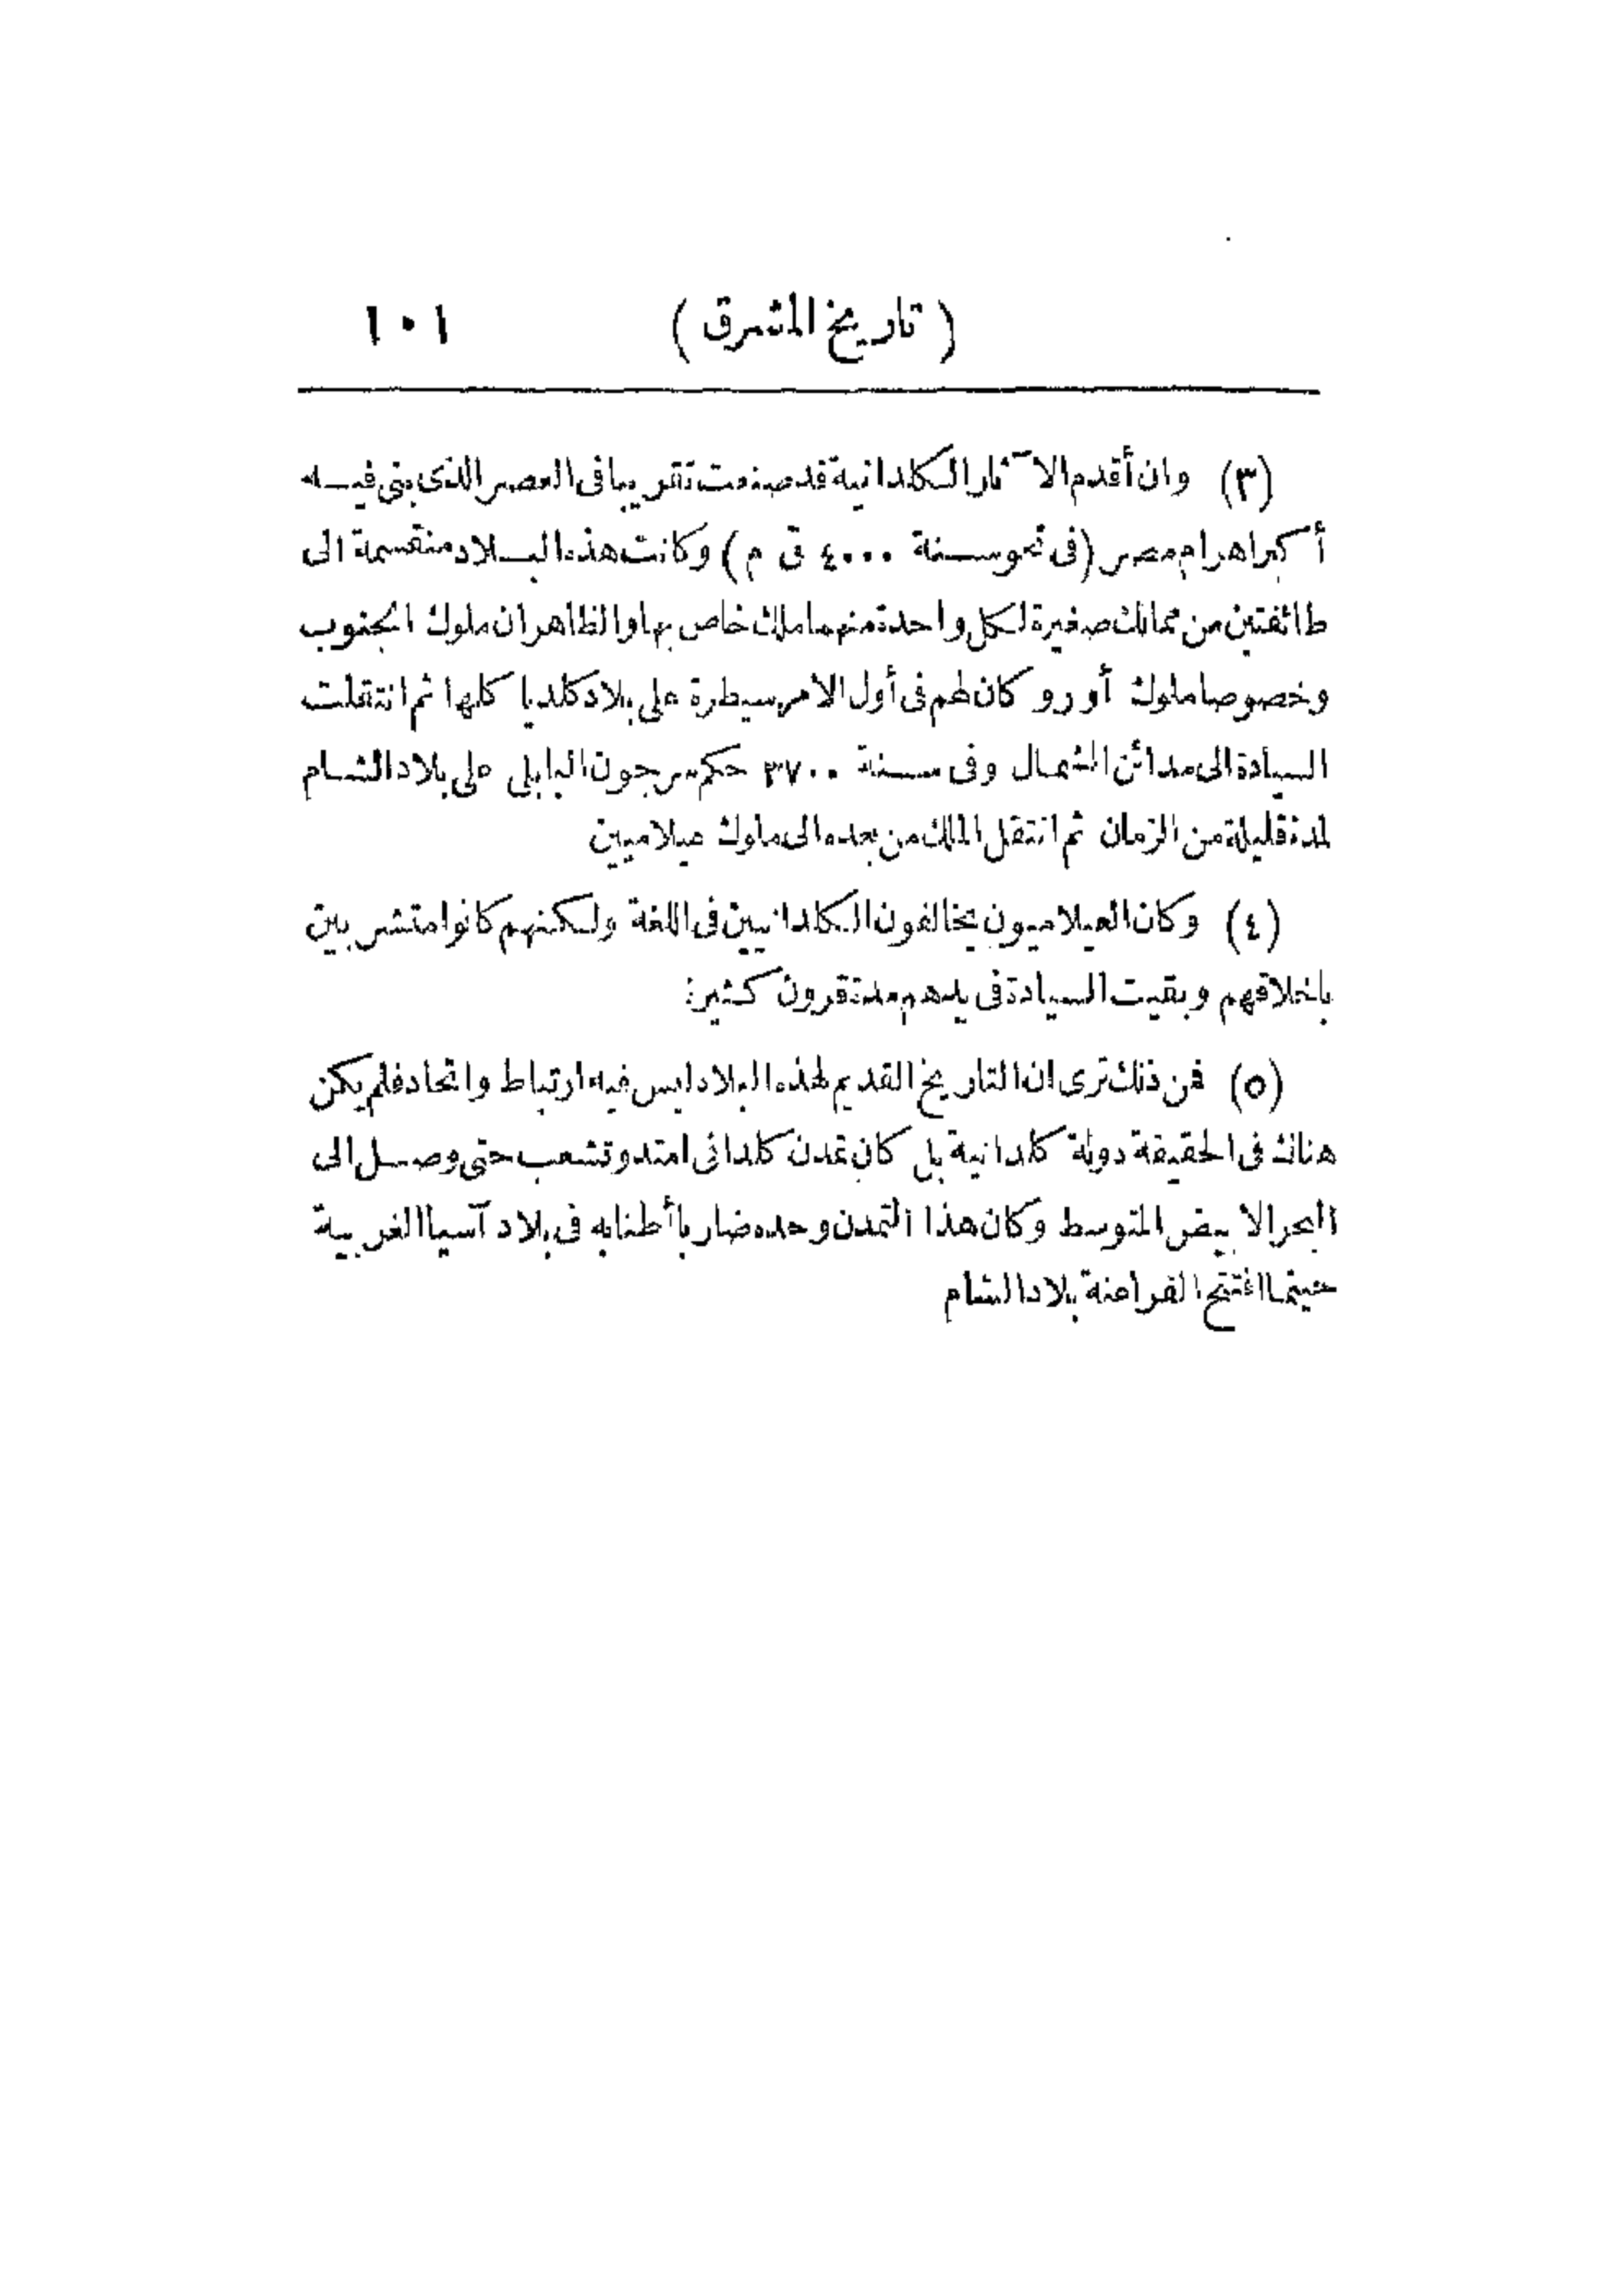 ( تاريخ المشرق ) ١٠١
(٣) وان أقدم الآثار الكلدانية قد صنعت تقريبا فى العصر الذى بنى فيـــه
أكبر اهرام مصر (فى نحو ســنة ٤٠٠٠ ق م) وكانت هذه البــلاد منقسمة الى
طائفتين من ممالك صغيرة لكل واحدة منهما ملك خاص بها والظاهر ان ملوك الجنوب
وخصوصا ملوك أورو كان لهم فى أول الامر سيطرة على بلاد كلديا كلها ثم انتقلت
السيادة الى مدائن الشمـال وفى ســنة ٣٧٠٠ حكم سرجون البابلى على بلاد الشـام
لمدة قليلة من الزمان ثم انتقل الملك من بعده الى ملوك عيلاميين
(٤) وكان العيلاميون يخالفون الكلدانيين فى اللغة ولكنهم كانوا متشربين
باخلاقهم وبقيت السيادة فى يدهم مدة قرون كثيرة
(٥) فمن ذلك ترى ان التاريخ القديم لهذه البلاد ليس فيه ارتباط واتحاد فلم يكن
هناك فى الحقيقة دولة كلدانية بل كان تمدن كلدانى امتد وتشعب حتى وصــل الى
البحر الابيض المتوسط وكان هذا التمدن وحده ضاربا أطنابه فى بلاد آسيا الغربية
حينما افتتح الفراعنة بلاد الشام